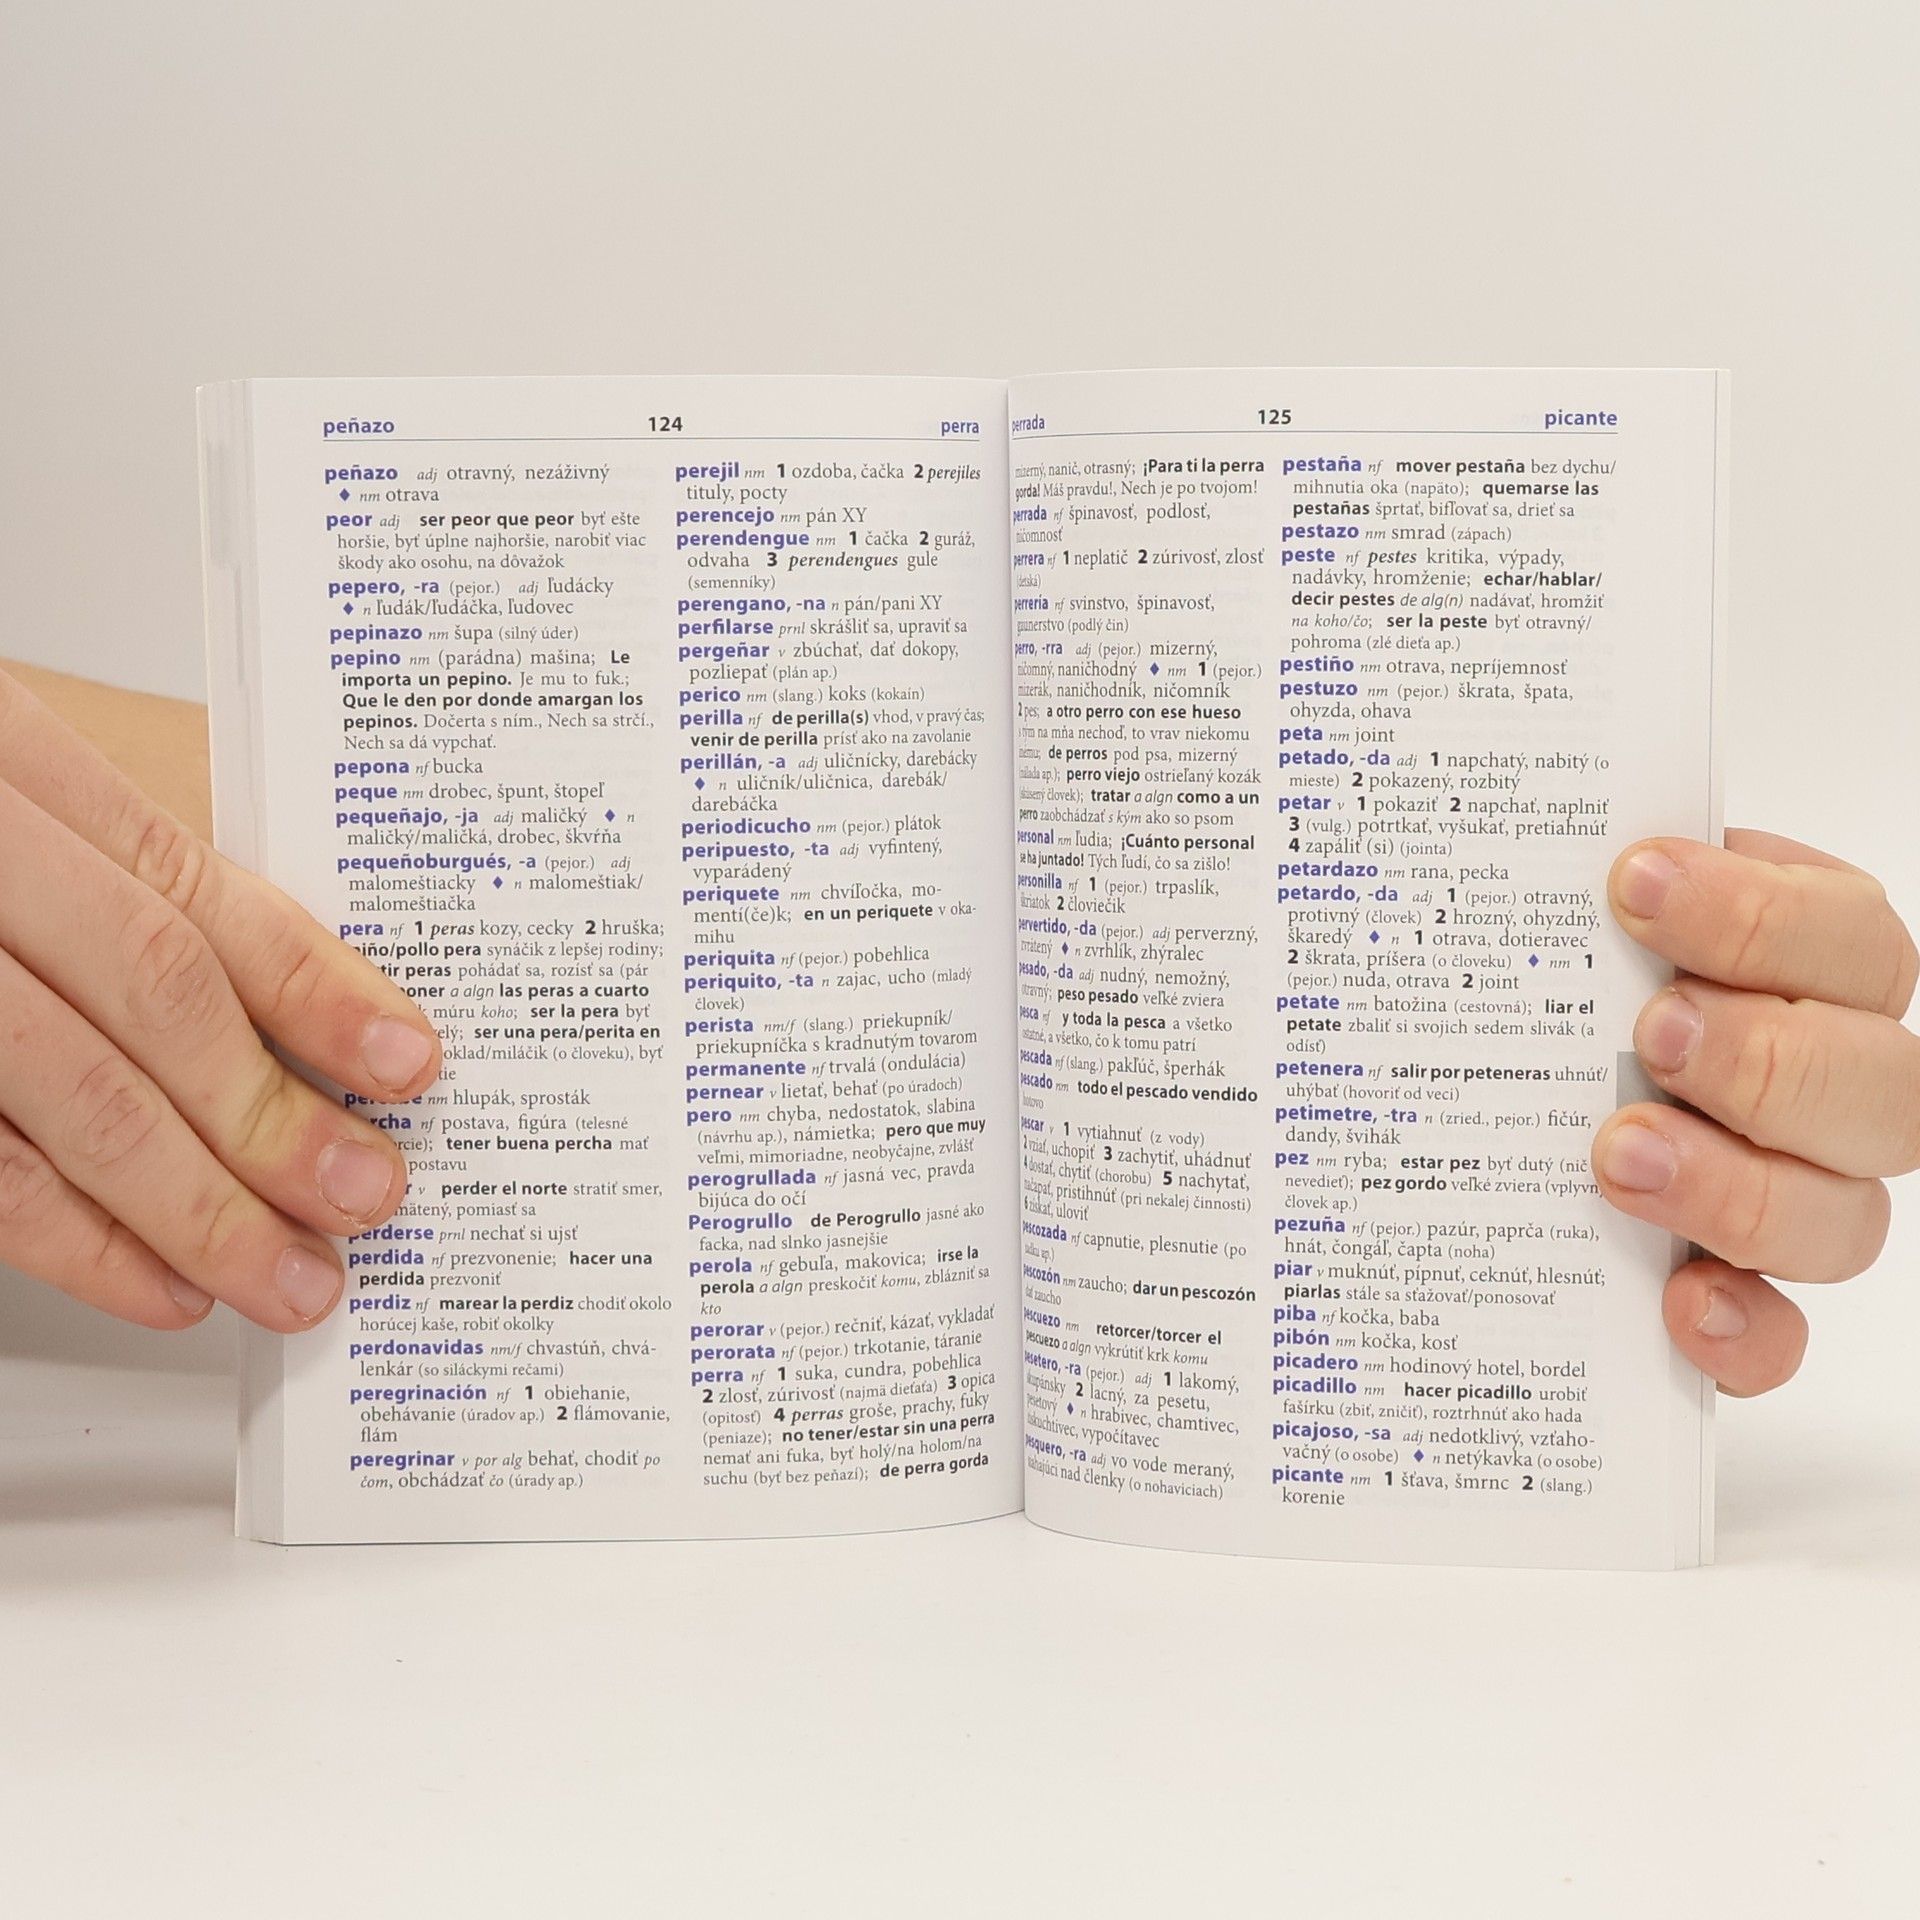 peñazo 124 perra
peñazo adj otravný, nezáživný
♦ nm otrava
peor adj ser peor que peor byť ešte
horšie, byť úplne najhoršie, narobiť viac
škody ako osohu, na dôvažok
pepero, -ra (pejor.) adj ľudácky
♦ n ľudák/ľudáčka, ľudovec
pepinazo nm šupa (silný úder)
pepino nm (parádna) mašina; Le
importa un pepino. Je mu to fuk.;
Que le den por donde amargan los
pepinos. Dočerta s ním., Nech sa strčí.,
Nech sa dá vypchať.
pepona nf bucka
peque nm drobec, špunt, štopeľ
pequeñajo, -ja adj maličký ♦ n
maličký/maličká, drobec, škvŕňa
pequeñoburgués, -a (pejor.) adj
malomeštiacky ♦ n malomeštiak/
malomeštiačka
pera nf 1 peras kozy, cecky 2 hruška;
niño/pollo pera synáčik z lepšej rodiny;
peras pohádať sa, rozísť sa (pár
poner a algn las peras a cuarto
múru koho; ser la pera byť
ser una pera/perita en
miláčik (o človeku), byť
nm hlupák, sprosták
percha nf postava, figúra (telesné
tener buena percha mať
postavu
v perder el norte stratiť smer,
pomiasť sa
perderse prnl nechať si ujsť
perdida nf prezvonenie; hacer una
perdida prezvoniť
perdiz nf marear la perdiz chodiť okolo
horúcej kaše, robiť okolky
perdonavidas nm/f chvastúň, chvá-
lenkár (so siláckymi rečami)
peregrinación nf 1 obiehanie,
obehávanie (úradov ap.) 2 flámovanie,
flám
peregrinar v por alg behať, chodiť po
čom, obchádzať čo (úrady ap.)
perejil nm 1 ozdoba, čačka 2 perejiles
tituly, pocty
perencejo nm pán XY
perendengue nm 1 čačka 2 guráž,
odvaha 3 perendengues gule
(semenníky)
perengano, -na n pán/pani XY
perfilarse prnl skrášliť sa, upraviť sa
pergeñar v zbúchať, dať dokopy,
pozliepať (plán ap.)
perico nm (slang.) koks (kokaín)
perilla nf de perilla(s) vhod, v pravý čas;
venir de perilla prísť ako na zavolanie
perillán, -a adj uličnícky, darebácky
♦ n uličník/uličnica, darebák/
darebáčka
periodicucho nm (pejor.) plátok
peripuesto, -ta adj vyfintený,
vyparádený
periquete nm chvíľočka, mo-
mentí(če)k; en un periquete v oka-
mihu
periquita nf (pejor.) pobehlica
periquito, -ta n zajac, ucho (mladý
človek)
perista nm/f (slang.) priekupník/
priekupníčka s kradnutým tovarom
permanente nf trvalá (ondulácia)
pernear v lietať, behať (po úradoch)
pero nm chyba, nedostatok, slabina
(návrhu ap.), námietka; pero que muy
veľmi, mimoriadne, neobyčajne, zvlášť
perogrullada nf jasná vec, pravda
bijúca do očí
Perogrullo de Perogrullo jasné ako
facka, nad slnko jasnejšie
perola nf gebuľa, makovica; irse la
perola a algn preskočiť komu, zblázniť sa
kto
perorar v (pejor.) rečniť, kázať, vykladať
perorata nf (pejor.) trkotanie, táranie
perra nf 1 suka, cundra, pobehlica
2 zlosť, zúrivosť (najmä dieťaťa) 3 opica
(opitosť) 4 perras groše, prachy, fuky
(peniaze); no tener/estar sin una perra
nemať ani fuka, byť holý/na holom/na
suchu (byť bez peňazí); de perra gorda
perrada 125 picante
mizerný, nanič, otrasný; ¡Para ti la perra
gorda! Máš pravdu!, Nech je po tvojom!
perrada nf špinavosť, podlosť,
ničomnosť
perrera nf 1 neplatič 2 zúrivosť, zlosť
(detská)
perrería nf svinstvo, špinavosť,
gaunerstvo (podlý čin)
perro, -rra adj (pejor.) mizerný,
ničomný, naničhodný ♦ nm 1 (pejor.)
mizerák, naničhodník, ničomník
2 pes; a otro perro con ese hueso
s tým na mňa nechoď, to vrav niekomu
inému; de perros pod psa, mizerný
(nálada ap.); perro viejo ostrieľaný kozák
(skúsený človek); tratar a algn como a un
perro zaobchádzať s kým ako so psom
personal nm ľudia; ¡Cuánto personal
se ha juntado! Tých ľudí, čo sa zišlo!
personilla nf 1 (pejor.) trpaslík,
škriatok 2 človiečik
pervertido, -da (pejor.) adj perverzný,
zvrátený ♦ n zvrhlík, zhýralec
pesado, -da adj nudný, nemožný,
otravný; peso pesado veľké zviera
pesca nf y toda la pesca a všetko
ostatné, a všetko, čo k tomu patrí
pescada nf (slang.) pakľúč, šperhák
pescado nm todo el pescado vendido
hotovo
pescar v 1 vytiahnuť (z vody)
2 vziať, uchopiť 3 zachytiť, uhádnuť
4 dostať, chytiť (chorobu) 5 nachytať,
načapať, pristihnúť (pri nekalej činnosti)
6 získať, uloviť
pescozada nf capnutie, plesnutie (po
zadku ap.)
pescozón nm zaucho; dar un pescozón
dať zaucho
pescuezo nm retorcer/torcer el
pescuezo a algn vykrútiť krk komu
pesetero, -ra (pejor.) adj 1 lakomý,
skupánsky 2 lacný, za pesetu,
pesetový ♦ n hrabivec, chamtivec,
úskuchtivec, vypočítavec
pesquero, -ra adj vo vode meraný,
siahajúci nad členky (o nohaviciach)
pestaña nf mover pestaña bez dychu/
mihnutia oka (napäto); quemarse las
pestañas šprtať, bifľovať sa, drieť sa
pestazo nm smrad (zápach)
peste nf pestes kritika, výpady,
nadávky, hromženie; echar/hablar/
decir pestes de alg(n) nadávať, hromžiť
na koho/čo; ser la peste byť otravný/
pohroma (zlé dieťa ap.)
pestiño nm otrava, nepríjemnosť
pestuzo nm (pejor.) škrata, špata,
ohyzda, ohava
peta nm joint
petado, -da adj 1 napchatý, nabitý (o
mieste) 2 pokazený, rozbitý
petar v 1 pokaziť 2 napchať, naplniť
3 (vulg.) potrtkať, vyšukať, pretiahnúť
4 zapáliť (si) (jointa)
petardazo nm rana, pecka
petardo, -da adj 1 (pejor.) otravný,
protivný (človek) 2 hrozný, ohyzdný,
škaredý ♦ n 1 otrava, dotieravec
2 škrata, príšera (o človeku) ♦ nm 1
(pejor.) nuda, otrava 2 joint
petate nm batožina (cestovná); liar el
petate zbaliť si svojich sedem slivák (a
odísť)
petenera nf salir por peteneras uhnúť/
uhýbať (hovoriť od veci)
petimetre, -tra n (zried., pejor.) fičúr,
dandy, švihák
pez nm ryba; estar pez byť dutý (nič
nevedieť); pez gordo veľké zviera (vplyvný
človek ap.)
pezuña nf (pejor.) pazúr, paprča (ruka),
hnát, čongáľ, čapta (noha)
piar v muknúť, pípnuť, ceknúť, hlesnúť;
piarlas stále sa sťažovať/ponosovať
piba nf kočka, baba
pibón nm kočka, kosť
picadero nm hodinový hotel, bordel
picadillo nm hacer picadillo urobiť
fašírku (zbiť, zničiť), roztrhnúť ako hada
picajoso, -sa adj nedotklivý, vzťaho-
vačný (o osobe) ♦ n netýkavka (o osobe)
picante nm 1 šťava, šmrnc 2 (slang.)
korenie